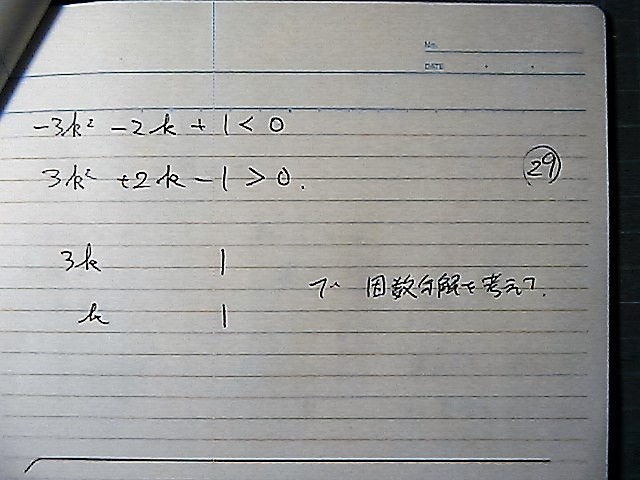 No.
DATE
-3k² -2k + 1 < 0
3k² +2k -1 > 0.
29
3k 1
で 因数分解を考えて.
k 1